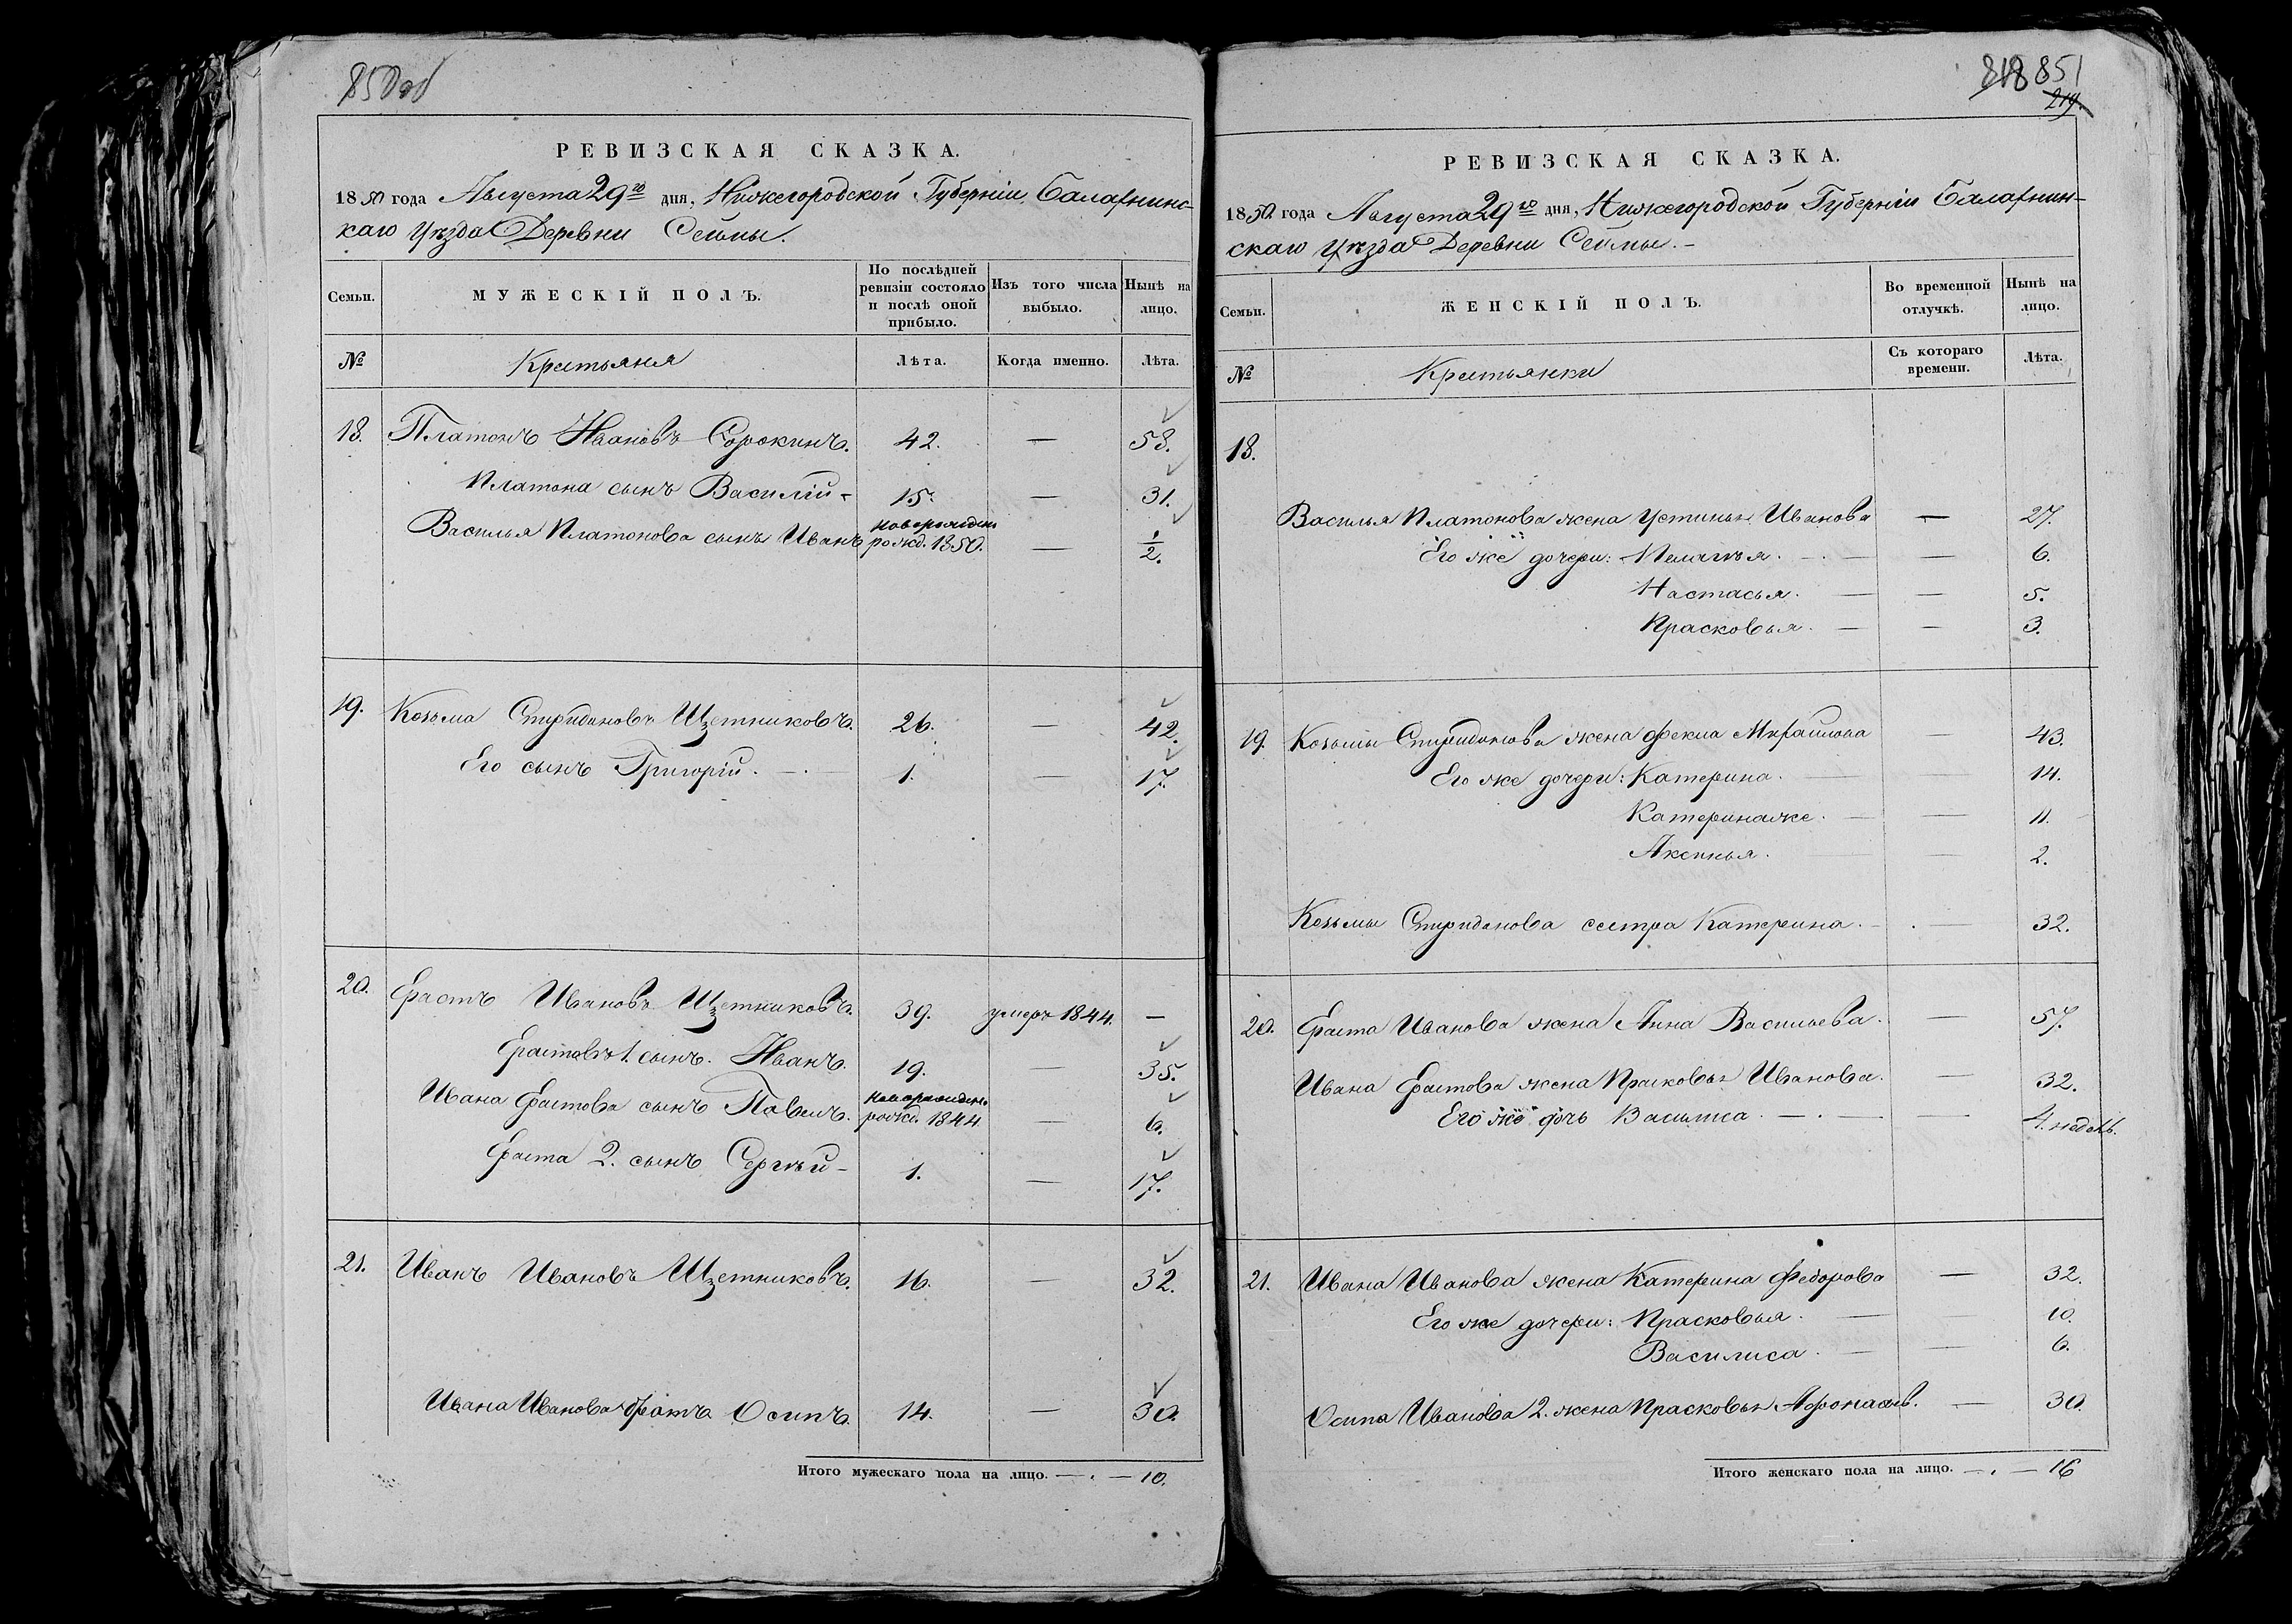 850об
РЕВИЗСКАЯ СКАЗКА.
1850 года Августа 29го дня, Нижегородской Губерніи, Балахнинс-
каго уѣзда Деревни Сеймы.
Семьи. МУЖЕСКІЙ ПОЛЪ. По послѣдней ревизіи состояло и послѣ оной прибыло. Изъ того числа выбыло. Нынѣ на лицо.
№ Крестьяня Лѣта. Когда именно. Лѣта.
18. Платонъ Ивановъ Сорокинъ. 42. — 58.
Платона сынъ Василій - 15. — 31.
Василья Платонова сынъ Иванъ новорожден рожд. 1850. — 1/2.
19. Козьма Спиридоновъ Щетниковъ. 26. — 42.
Его сынъ Григорій. — 1. — 17.
20. Ерастъ Ивановъ Щетниковъ. 39. умеръ 1844. —
Ерастовъ 1. сынъ. Иванъ. 19. — 35.
Ивана Ерастова сынъ Павелъ. новорожден. рожд. 1844. — 6.
Ераста 2. сынъ Сергѣй - 1. — 17.
21. Иванъ Ивановъ Щетниковъ. 16. — 32.
Ивана Иванова братъ Осипъ. 14. — 30.
Итого мужескаго пола на лицо. — . — 10.
818 851
219.
РЕВИЗСКАЯ СКАЗКА.
1850. года Августа 29го дня, Нижегородской Губерніи Балахнин-
скаго уѣзда Деревни Сеймы. -
Семьи. ЖЕНСКІЙ ПОЛЪ. Во временной отлучкѣ. Нынѣ на лицо.
№ Крестьянки Съ котораго времени. Лѣта.
18.
Василья Платонова жена Устинья Иванова — 27.
Его же дочери: Пелагѣя. — — 6.
Настасья. — — 5.
Прасковья. — — 3.
19. Козьмы Спиридонова жена Фекла Михайлова — 43.
Его же дочери: Катерина. — 14.
Катеринаже. — — 11.
Аксинья. — — 2.
Козьмы Спиридонова сестра Катерина. — 32.
20. Ераста Иванова жена Анна Васильева. — 57.
Ивана Ерастова жена Прасковья Иванова. — 32.
Его же дочь Василиса — . — — 4. недѣль.
21. Ивана Иванова жена Катерина Федорова — 32.
Его же дочери: Прасковья. — 10.
Василиса. — — 6.
Осипа Иванова 2. жена Прасковья Афонасьев. — 30.
Итого женскаго пола на лицо. — . — 16